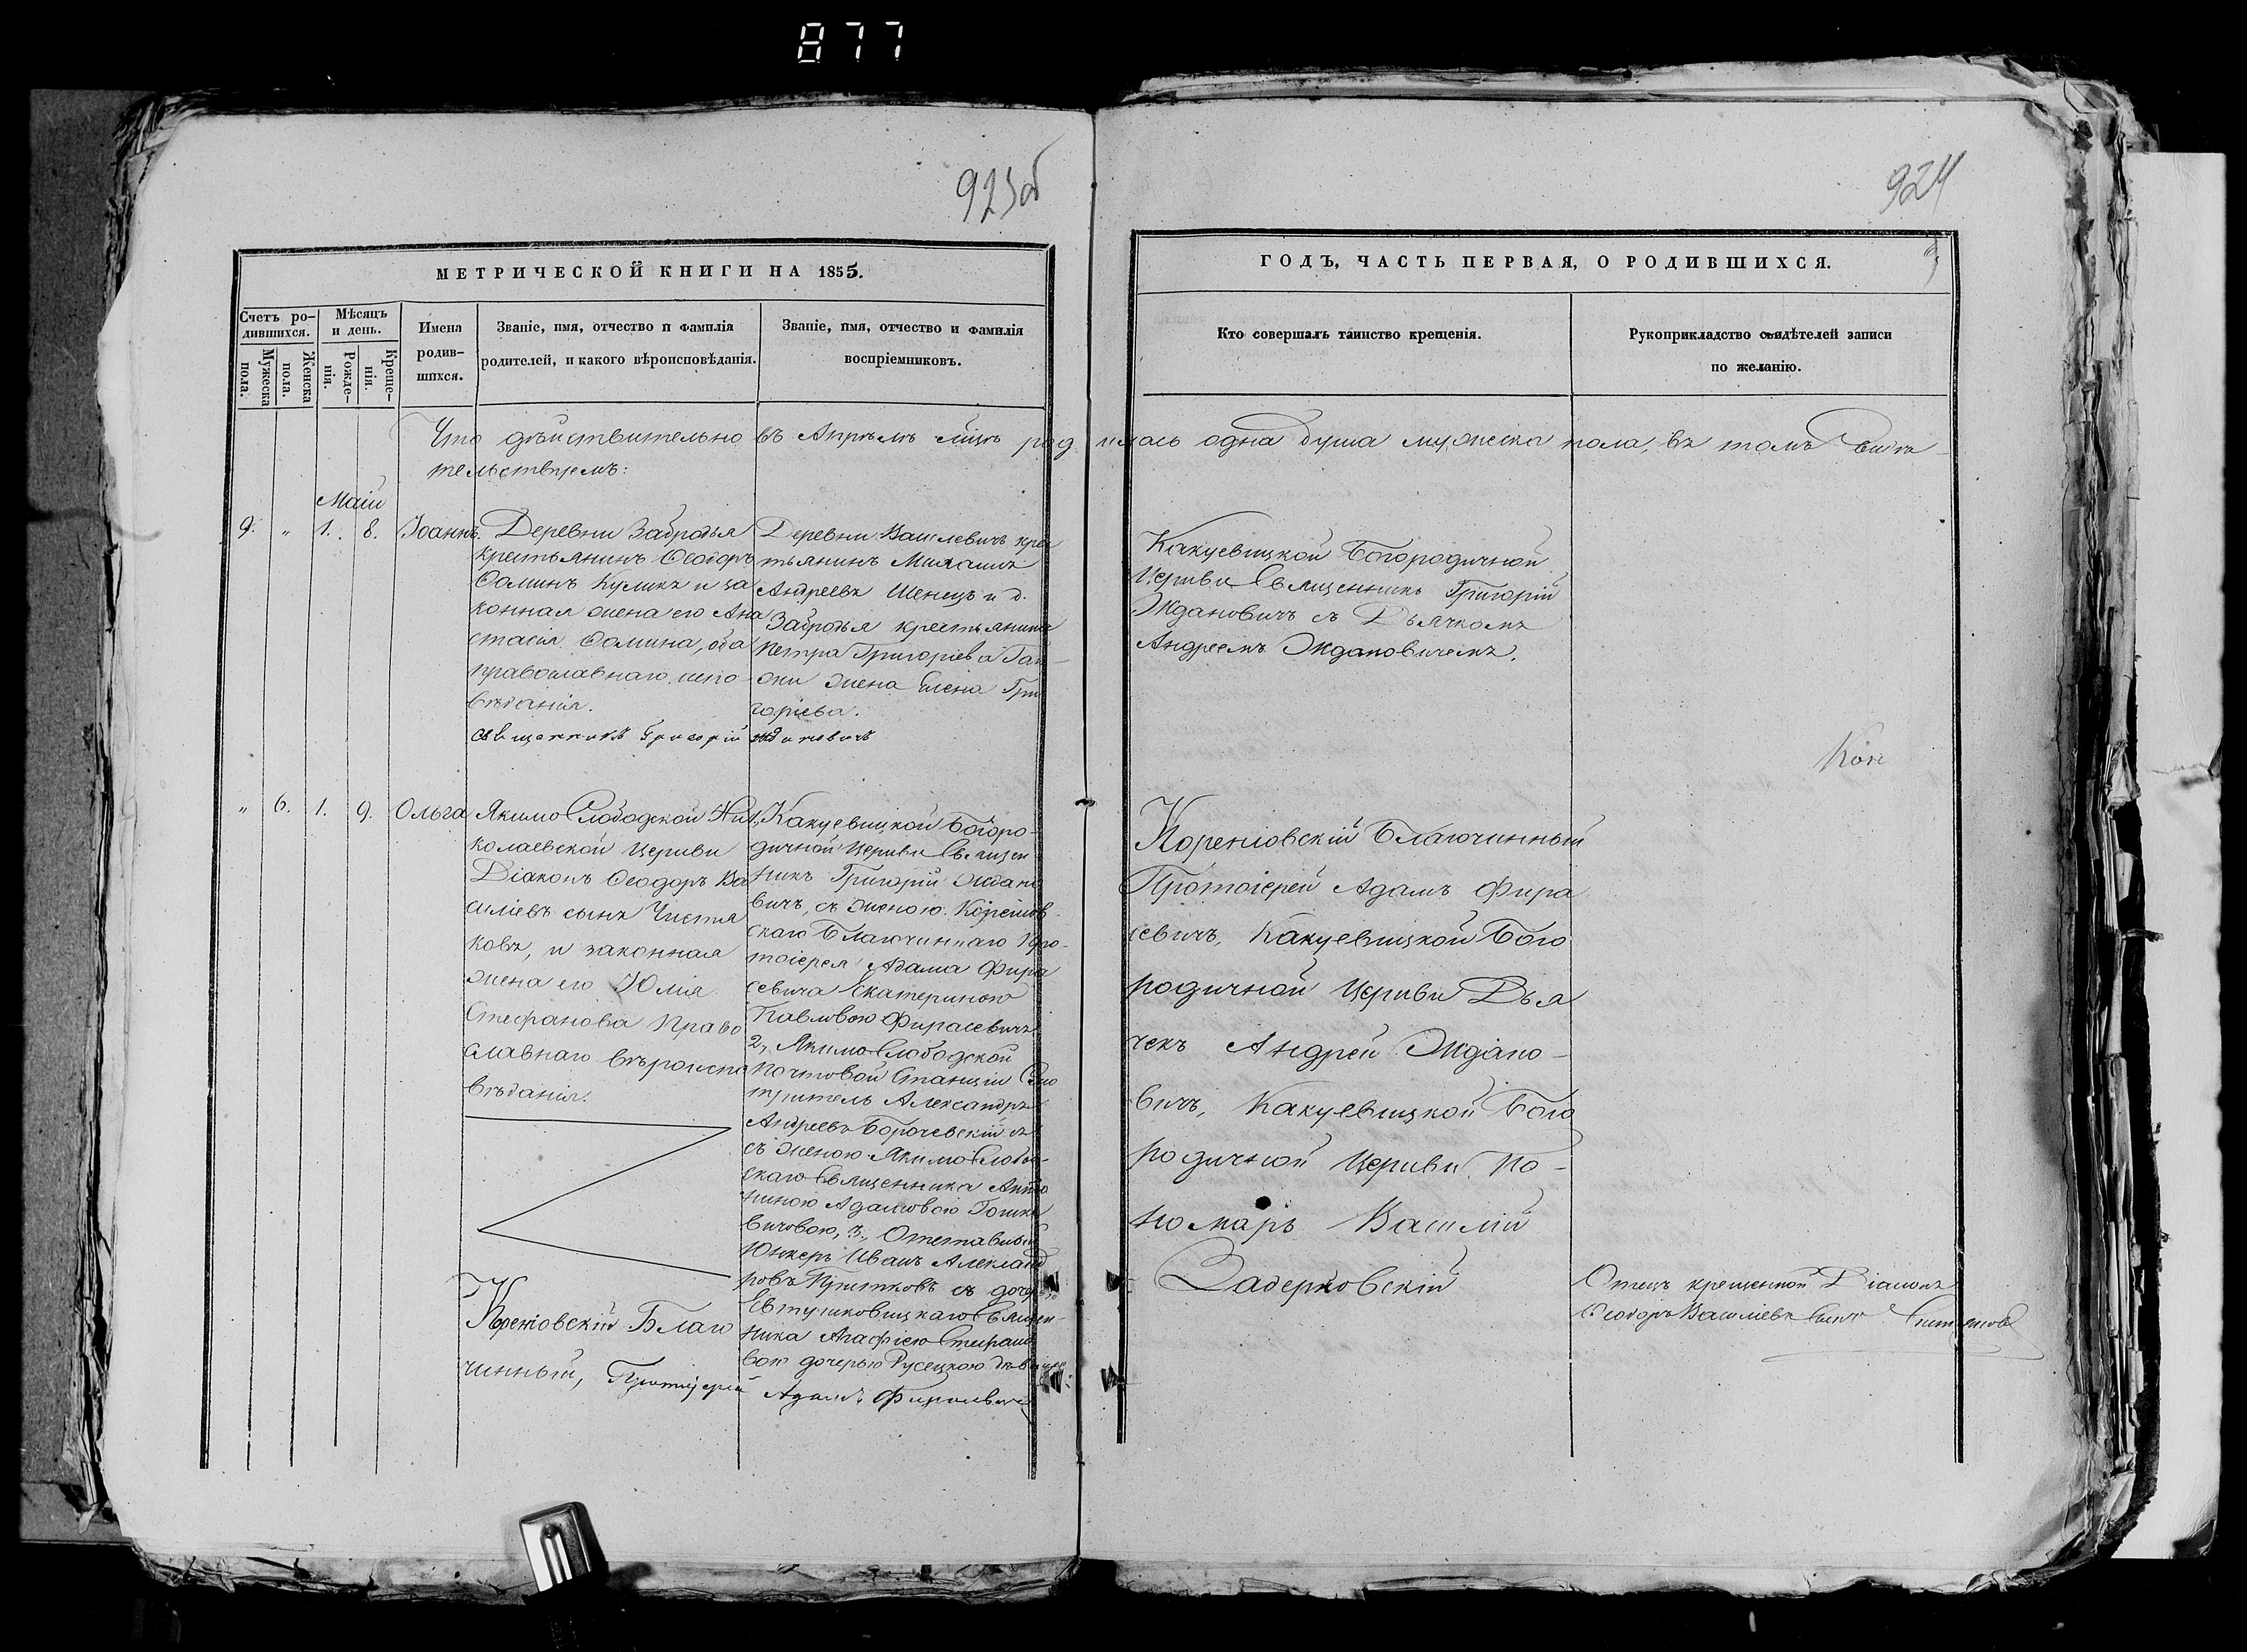 877
923об
924
МЕТРИЧЕСКОЙ КНИГИ НА 1855.
Счетъ ро-
дившихся.
Мѣсяцъ
и день.
Мужеска
пола.
Женска
пола.
Рожде-
нія.
Креще-
нія.
Имена
родив-
шихся.
Званіе, имя, отчество и фамилія
родителей, и какого вѣроисповѣданія.
Званіе, имя, отчество и фамилія
воспріемниковъ.
ГОДЪ, ЧАСТЬ ПЕРВАЯ, О РОДИВШИХСЯ.
Кто совершалъ таинство крещенія.
Рукоприкладство свидѣтелей записи
по желанію.
Что дѣйствительно въ Апрѣлѣ родилась одна душа мужеска пола, въ томъ свидѣ-
тельствуемъ:
Маій
9. " 1. 8. Іоаннъ.
Деревни Забродья
крестьянинъ Ѳеодоръ
Ѳоминъ Куликъ и за
конная жена его Ана
стасія Ѳомина, оба
православнаго испо-
вѣданія.
Деревни Василевичъ крес
тьянинъ
Андреевъ Шенецъ и д.
Забродья крестьянина
Петра Григоріева
жена Елена Гри
горіева.
Священникъ Григорій Ждановичъ
Какуевицкой Богородичной
Церкви Священникъ Григорій
Ждановичъ съ Дьячкомъ
Андреемъ Ждановичемъ.
" 6. 1. 9. Ольга
Якимо Слободской Ни
колаевской Церкви
Діаконъ Ѳеодоръ Ва
силіевъ сынъ Чистя
ковъ, и законная
жена его Юлія
Стефанова Право
славнаго вѣроиспо
вѣданія.
1, Какуевицкой Богоро-
дичной Церкви Священ
никъ Григорій Ждано
вичъ, съ женою Кореніов-
скаго Благочиннаго Про-
тоіерея Адама Фира
севича Екатериною
Павловою Фирасевичъ
2, Якимо Слободской
Почтовой Станціи Смо
тритель Александръ
Андреевъ Борочевскій
съ женою Якимо Слобод-
скаго Священника Анто
ниною Адамовою Гошке
вичовою, 3, Отставный
Юнкеръ Иванъ Александ
ровъ съ дочерью
Евтушковицкаго Священ-
ника Агафіею Стефано
вою дочерью Русецкою
Кореніовскій Благо
чинный, Протоіерей Адамъ Фирасевичъ
Кореніовскій Благочинный
Протоіерей Адамъ Фира
севичъ, Какуевицкой Бого
родичной Церкви Дья
чекъ Андрей Ждано-
вичъ, Какуевицкой Бого
родичной Церкви По-
номарь Василій
Задерковскій
Отецъ крещенной Діаконъ
Ѳеодоръ Василіевъ сынъ Чистяковъ